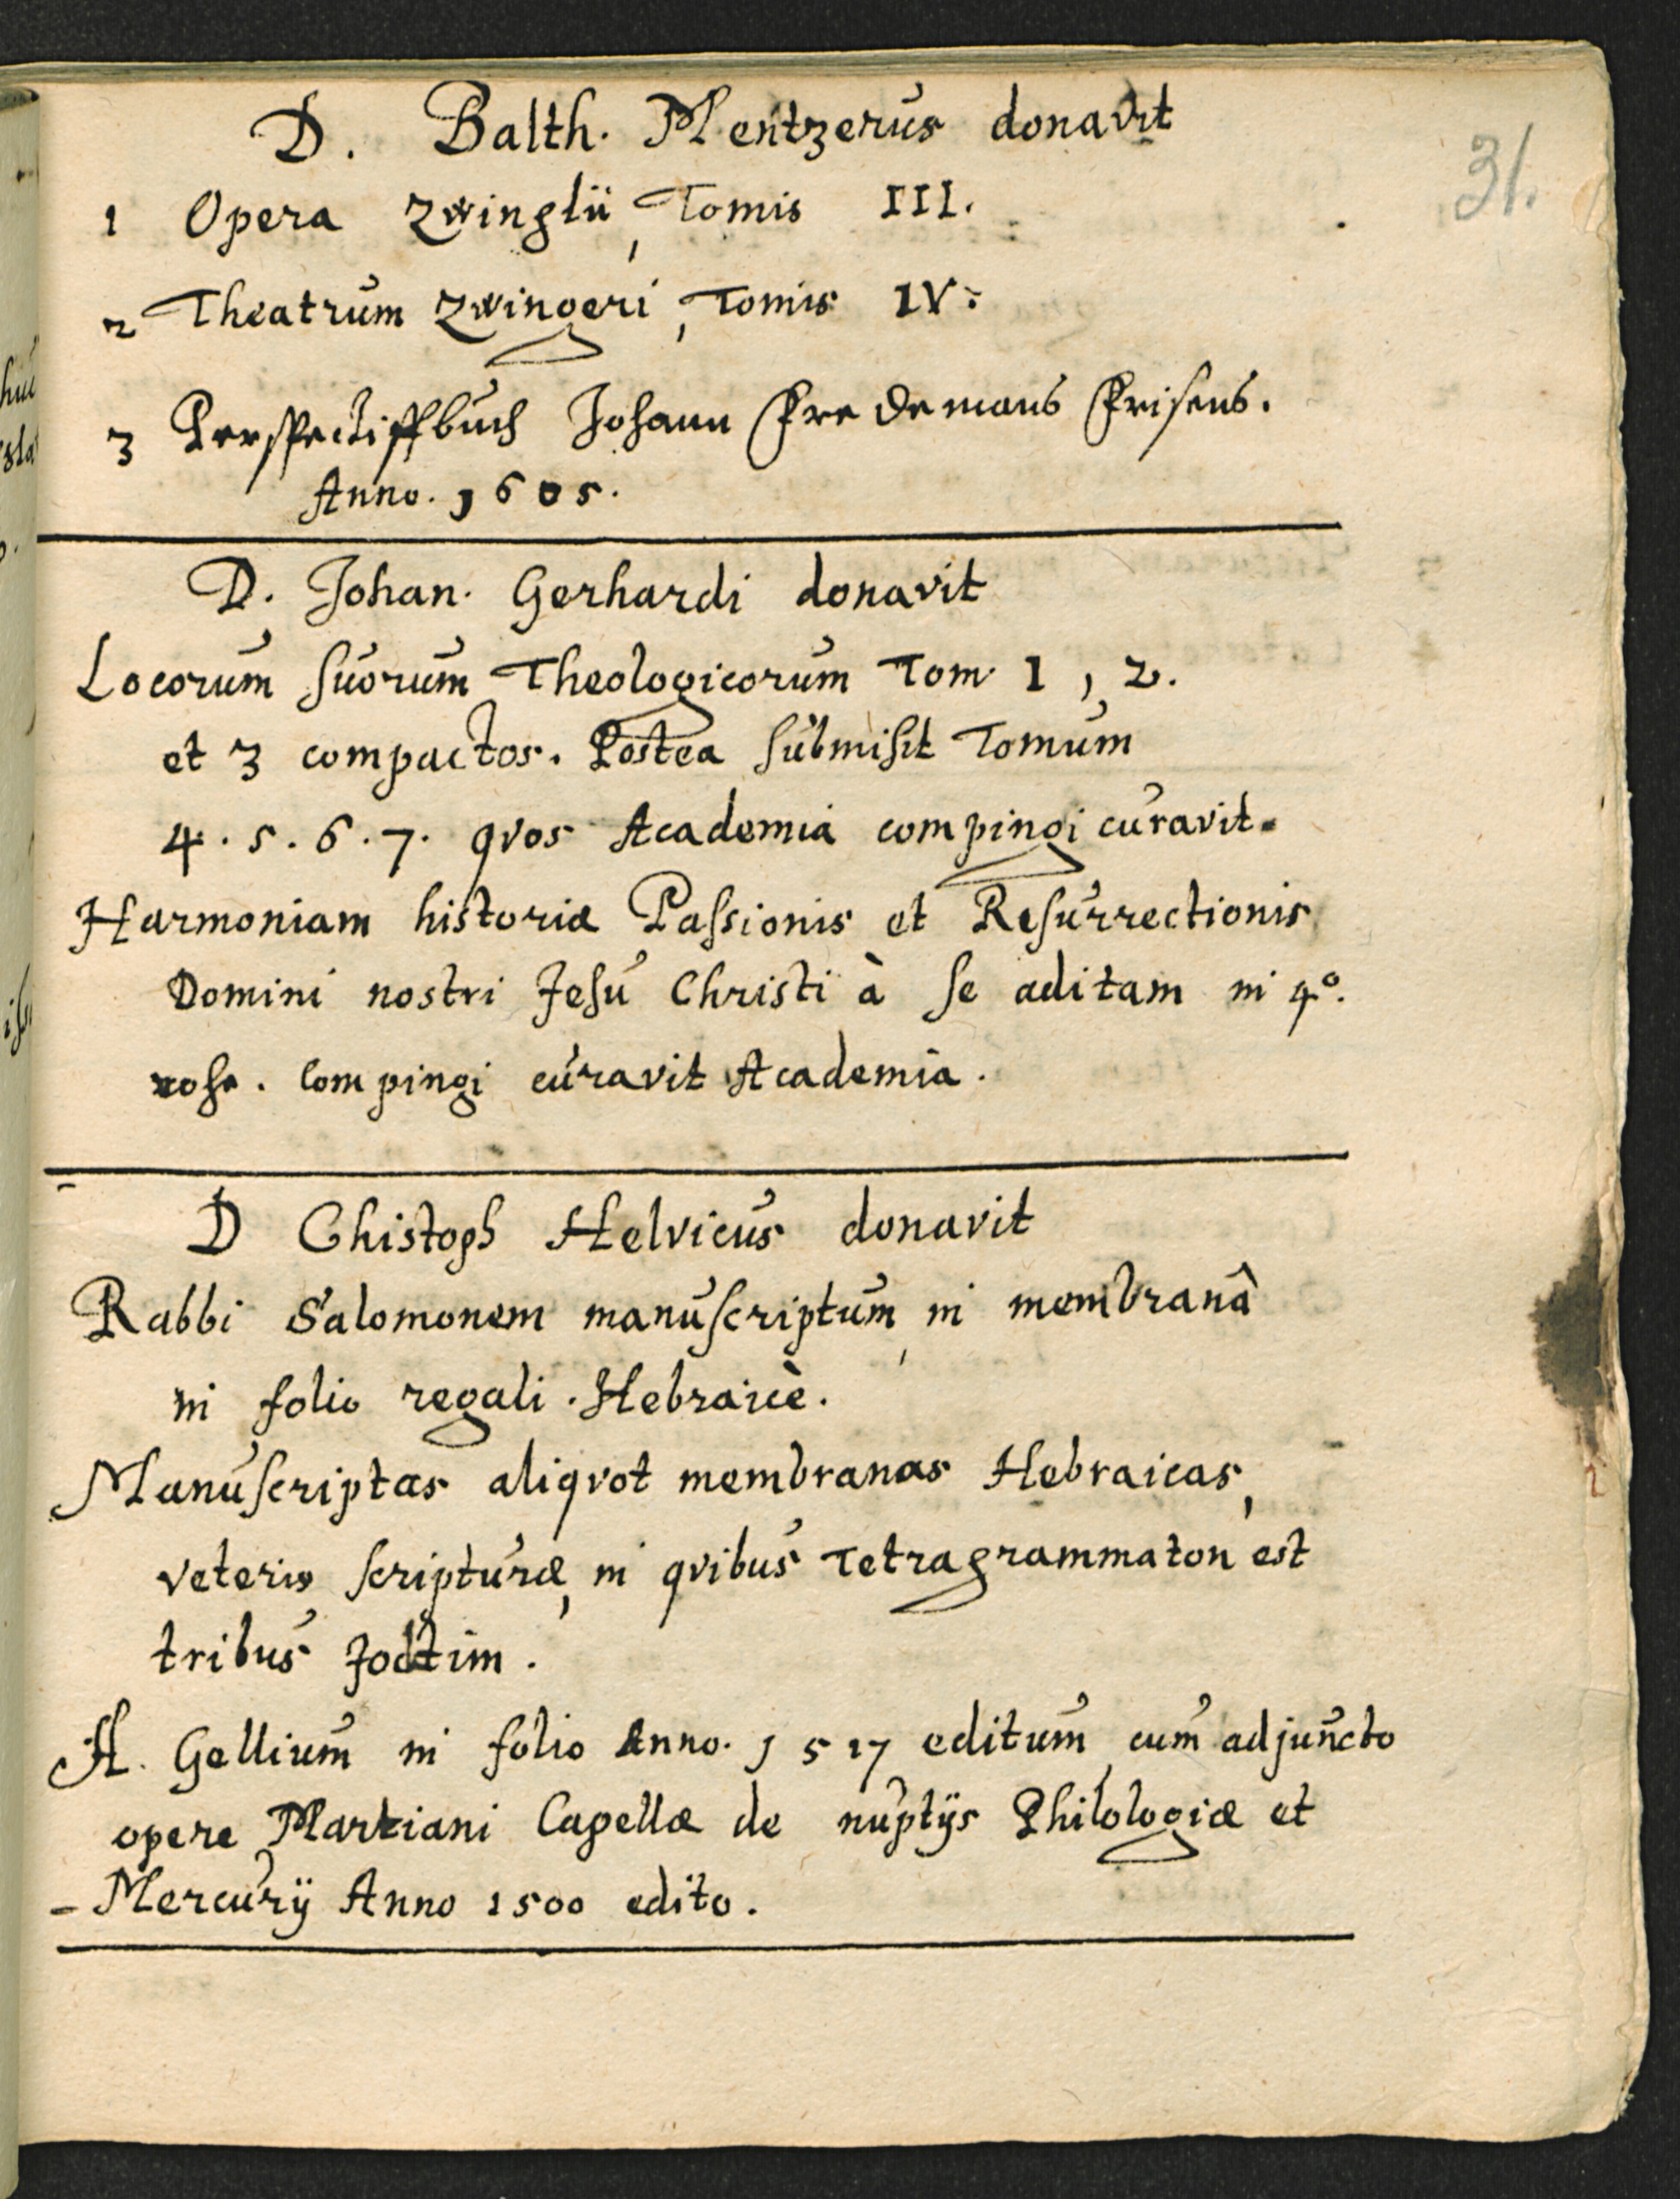 31.
D. Balth. Mentzerus donavit
1 Opera Zwinglii, Tomis III.
2 Theatrum Zwingeri, Tomis IV.
3 Perspectiffbuch Johann Fredemans Frisens.
Anno. 1605.
D. Johan. Gerhardi donavit
Locorum suorum Theologicorum Tom. 1, 2.
et 3 compactos. Postea submisit Tomum
4. 5. 6. 7. qvos Academia compingi curavit.
Harmoniam historiæ Passionis et Resurrectionis
Domini nostri Jesu Christi à se aditam in 4º.
compingi curavit Academia.
D Chistoph Helvicus donavit
Rabbi Salomonem manuscriptum, in membranâ
in folio regali. Hebraicè.
Manuscriptas aliqvot membranas Hebraicas,
veteris scripturæ, in qvibus Tetragrammaton est
tribus
A. Gellium in folio Anno. 1517 editum cum adjuncto
opere Martiani Capellæ de nuptijs Philologiæ et
Mercurij Anno 1500 edito.